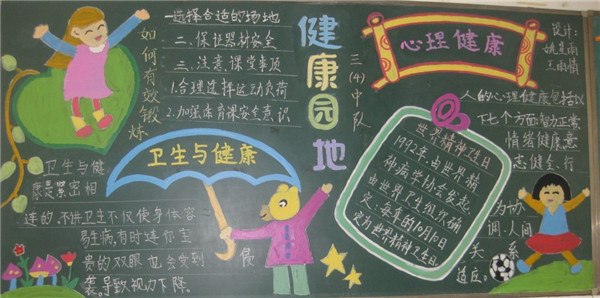 如何有效锻炼
一选择合适的场地
二、保证器材安全
三、注意课堂事项
1.合理选择运动负荷
2.加强体育课安全意识
健康园地
三(4)中队
心理健康
设计:
姚星雨
王雨情
卫生与健康
卫生与健
康是紧密相
连的,不讲卫生不仅使身体容
易生病,有时连你宝
贵的双眼也会受到侵
袭,导致视力下降。
世界精神卫生日
1992年,由世界精
神病学协会发起,
由世界卫生组织确
定,每年的10月10日
定为世界精神卫生日。
人的心理健康包括以
下七个方面:智力正常
情绪健康意
志健全行
为协
调、人间
关系
适应。